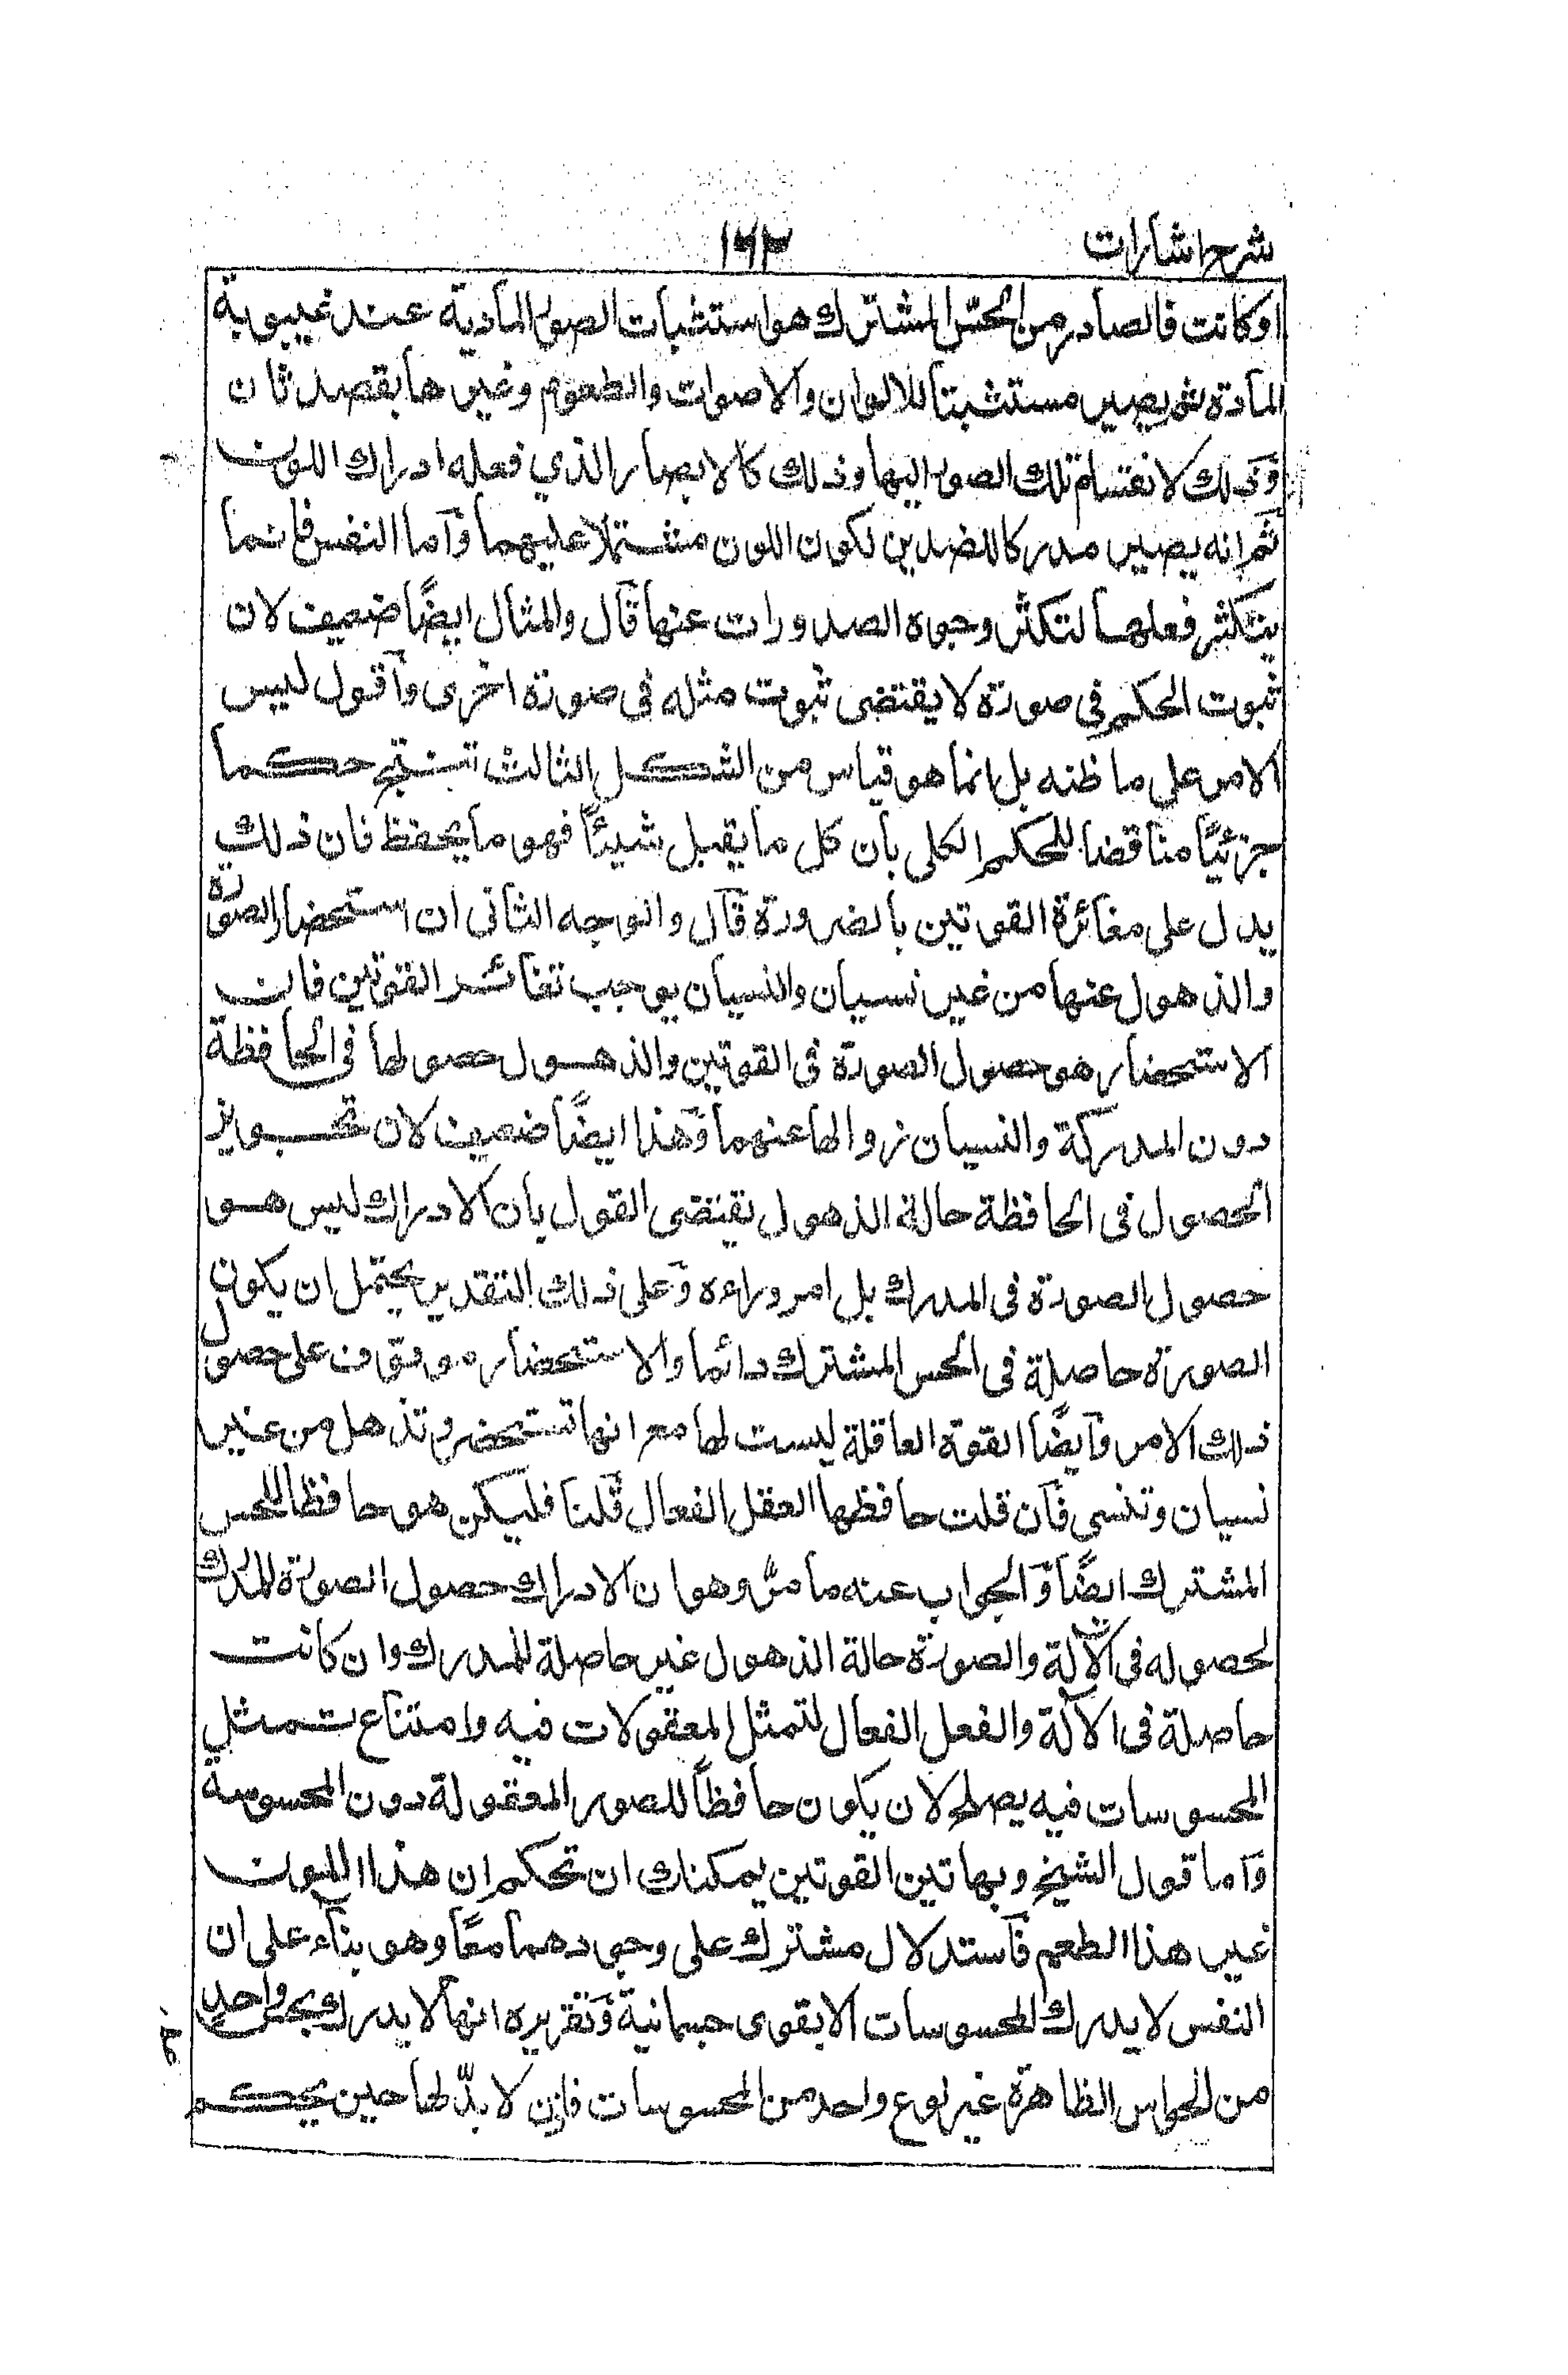 شرح اشارات
١٦٢
او كانت فالصادر من الحسّ المشترك هو استثبات الصور المادية عند غيبوبة
المادة ثم يصير مستثبتا للالوان والاصوات والطعوم وغيرها بقصد ثان
وذلك لانقسام تلك الصور اليها وذلك كالابصار الذي فعله ادراك اللون
ثم انه يصير مدركا للضدين لكون اللون مشتملا عليهما وآما النفس فانما
يتكثر فعلها لتكثر وجوه الصدورات عنها قآل والمثال ايضًا ضعيف لان
ثبوت الحكم فى صورة لا يقتضى ثبوت مثله فى صورة اخرى وآقول ليس
الامر على ما ظنه بل انما هو قياس من الشكل الثالث تستنتج حكما
جزئيًا مناقضا للحكم الكلى بان كل ما يقبل شيئًا فهو ما يحفظ فان ذلك
يدل على مغائرة القوتين بالضرورة قآل والوجه الثانى ان استحضار الصورة
والذهول عنها من غير نسيان والنسيان يوجب تغائر القوتين فان
الاستحضار هو حصول الصورة فى القوتين والذهول حصولها فى الحافظة
دون المدركة والنسيان زوالها عنهما وهذا ايضًا ضعيف لان تجويز
الحصول فى الحافظة حالة الذهول يقتضى القول بان الادراك ليس هو
حصول الصورة فى المدرك بل امر وراءه وعلى ذلك التقدير يحتمل ان يكون
الصورة حاصلة فى الحس المشترك دائما والاستحضار موقوف على حصول
ذلك الامر وآيضًا القوة العاقلة ليست لها مع انها تستحضر وتذهل من غير
نسيان وتنسى فآن قلت حافظها العقل الفعال قلنا فليكن هو حافظا للحس
المشترك ايضًا وآلجواب عنه ما مرّ وهو ان الادراك حصول الصورة للمدرك
لحصوله فى الآلة والصورة حالة الذهول غير حاصلة للمدرك وان كانت
حاصلة فى الآلة والفعل الفعال لتمثل المعقولات فيه وامتناع تمثل
المحسوسات فيه يصلح لان يكون حافظًا للصور المعقولة دون المحسوسة
وآما قول الشيخ وبهاتين القوتين يمكنك ان تحكم ان هذا اللون
غير هذا الطعم فآستدلال مشترك على وجودهما معًا وهو بناء على ان
النفس لا يدرك المحسوسات الا بقوى جسمانية وتقريره انها لا يدرك بحس واحد
من الحواس الظاهرة غير نوع واحد من المحسوسات فاذن لا بدّ لها حين يحكم